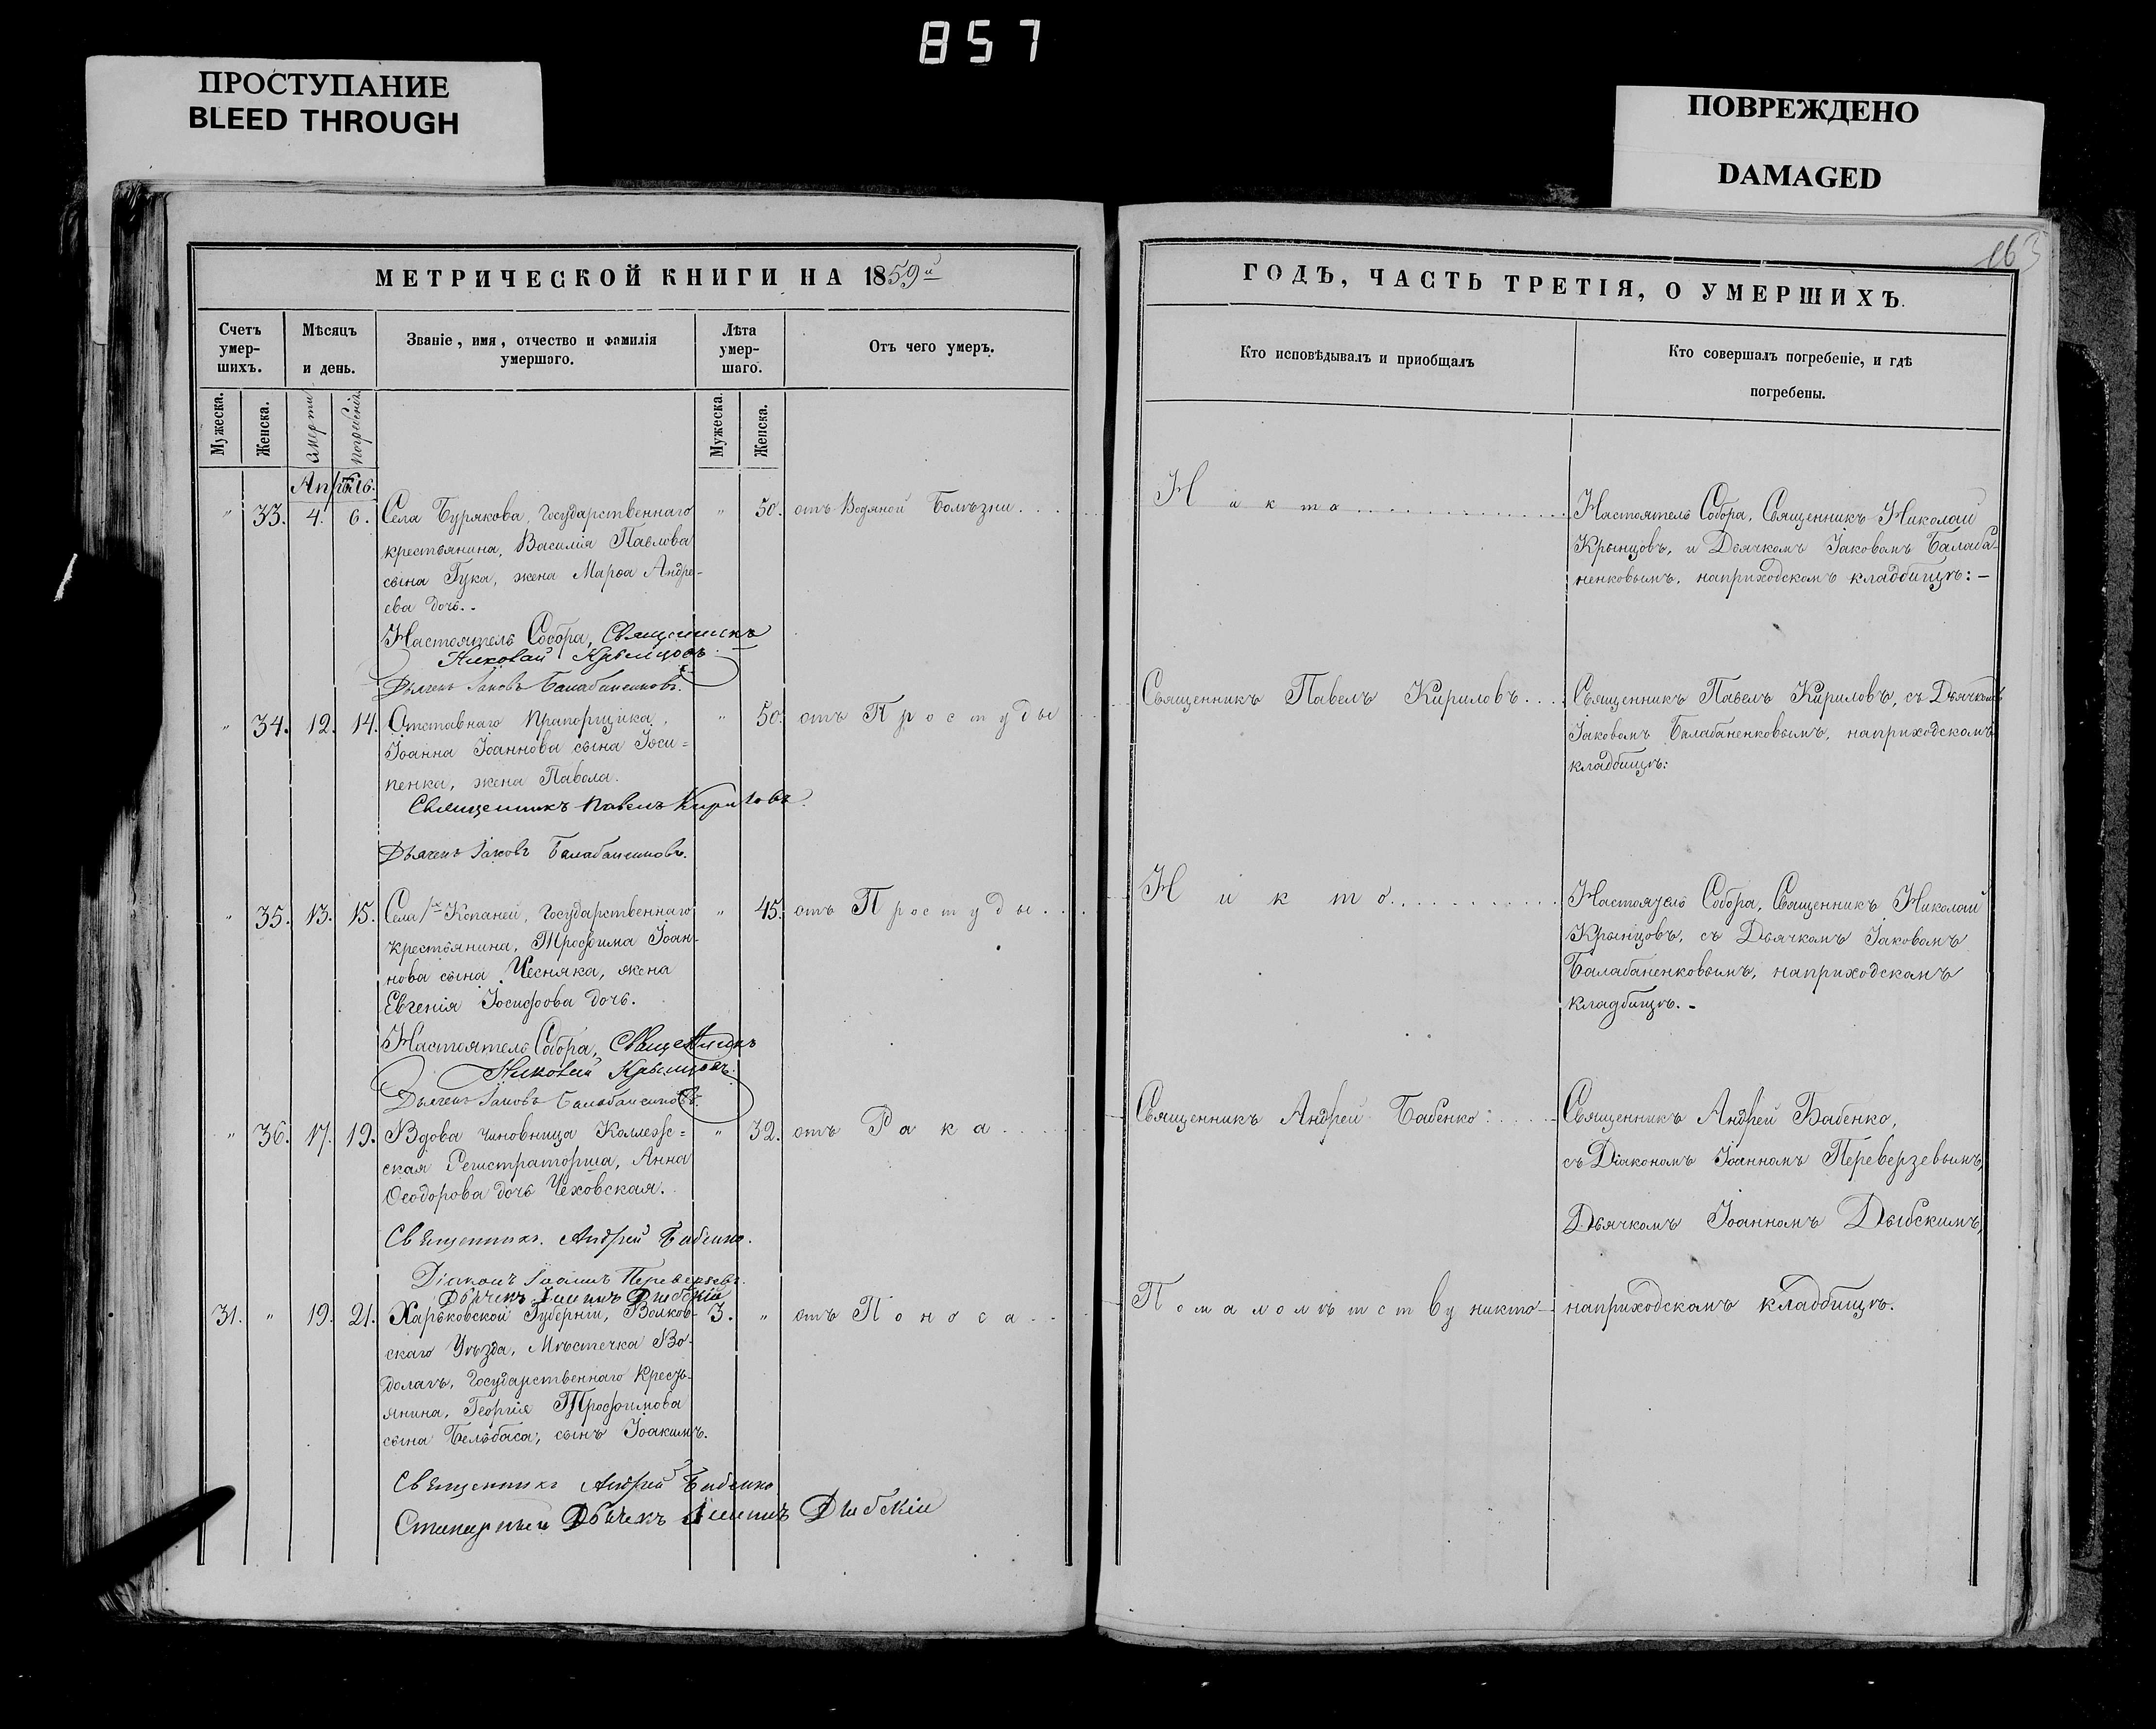 857
ПРОСТУПАНИЕ
BLEED THROUGH
ПОВРЕЖДЕНО
DAMAGED
МЕТРИЧЕСКОЙ КНИГИ НА 1859й
Счетъ умер-шихъ.
Мѣсяцъ и день.
Званіе, имя, отчество и фамилія умершаго.
Лѣта умер-шаго.
Отъ чего умеръ.
Мужеска. Женска. Смерти Погребенія Мужеска. Женска.
Апрѣль.
" 33. 4. 6. Села Бурякова, Государственнаго " 50. отъ Водяной Болѣзни
крестьянина, Василія Павлова
сына Гука, жена Марѳа Андре-
ева дочь.
Настоятель Собора, Священникъ
Николай Крынцовъ.
Дьячекъ Іаковъ Балабаненковъ.
" 34. 12. 14. Отставнаго Прапорщика, " 50. отъ Простуды
Іоанна Іоаннова сына Іоси-
пенка, жена Павола.
Священникъ Павелъ Кириловъ.
Дьячекъ Іаковъ Балабаненковъ.
" 35. 13. 15. Села Копаней, Государственнаго " 45. отъ Простуды
крестьянина, Трофима Іоан-
нова сына Чесняка, жена
Евгенія Іосифова дочь.
Настоятель Собора, Священникъ
Николай Крынцовъ.
Дьячекъ Іаковъ Балабаненковъ.
" 36. 17. 19. Вдова чиновница Коллежс- " 32. отъ Рака
ская Регистраторша, Анна
Ѳеодорова дочь Чеховская.
Священникъ Андрей Бабенко.
Діаконъ Іоаннъ Переверзевъ.
Дьячекъ Іоаннъ Дыбскій
31. " 19. 21. Харьковской Губерніи, Волков- 3. " отъ Поноса
скаго Уѣзда, Мѣстечка Во-
долагъ, Государственнаго Кресть-
янина, Георгія Трофимова
сына Бельбаса, сынъ Іоакимъ.
Священникъ Андрей Бабенко
Дьячекъ Іоаннъ Дыбскій
163
ГОДЪ, ЧАСТЬ ТРЕТІЯ, О УМЕРШИХЪ.
Кто исповѣдывалъ и пріобщалъ
Кто совершалъ погребеніе, и гдѣ
погребены.
Никто
Настоятель Собора, Священникъ Николай
Крынцовъ, и Дьячкомъ Іаковомъ Балаба-
ненковымъ, наприходскомъ кладбищѣ: –
Священникъ Павелъ Кириловъ
Священникъ Павелъ Кириловъ, съ Дьячкомъ
Іаковомъ Балабаненковымъ, наприходскомъ
кладбищѣ:
Никто
Настоятель Собора, Священникъ Николай
Крынцовъ, съ Дьячкомъ Іаковомъ
Балабаненковымъ, наприходскомъ
кладбищѣ. -
Священникъ Андрей Бабенко
Священникъ Андрей Бабенко,
съ Діакономъ Іоанномъ Переверзевымъ,
Дьячкомъ Іоанномъ Дыбскимъ,
Помалолѣтству никто
наприходскомъ кладбищѣ.